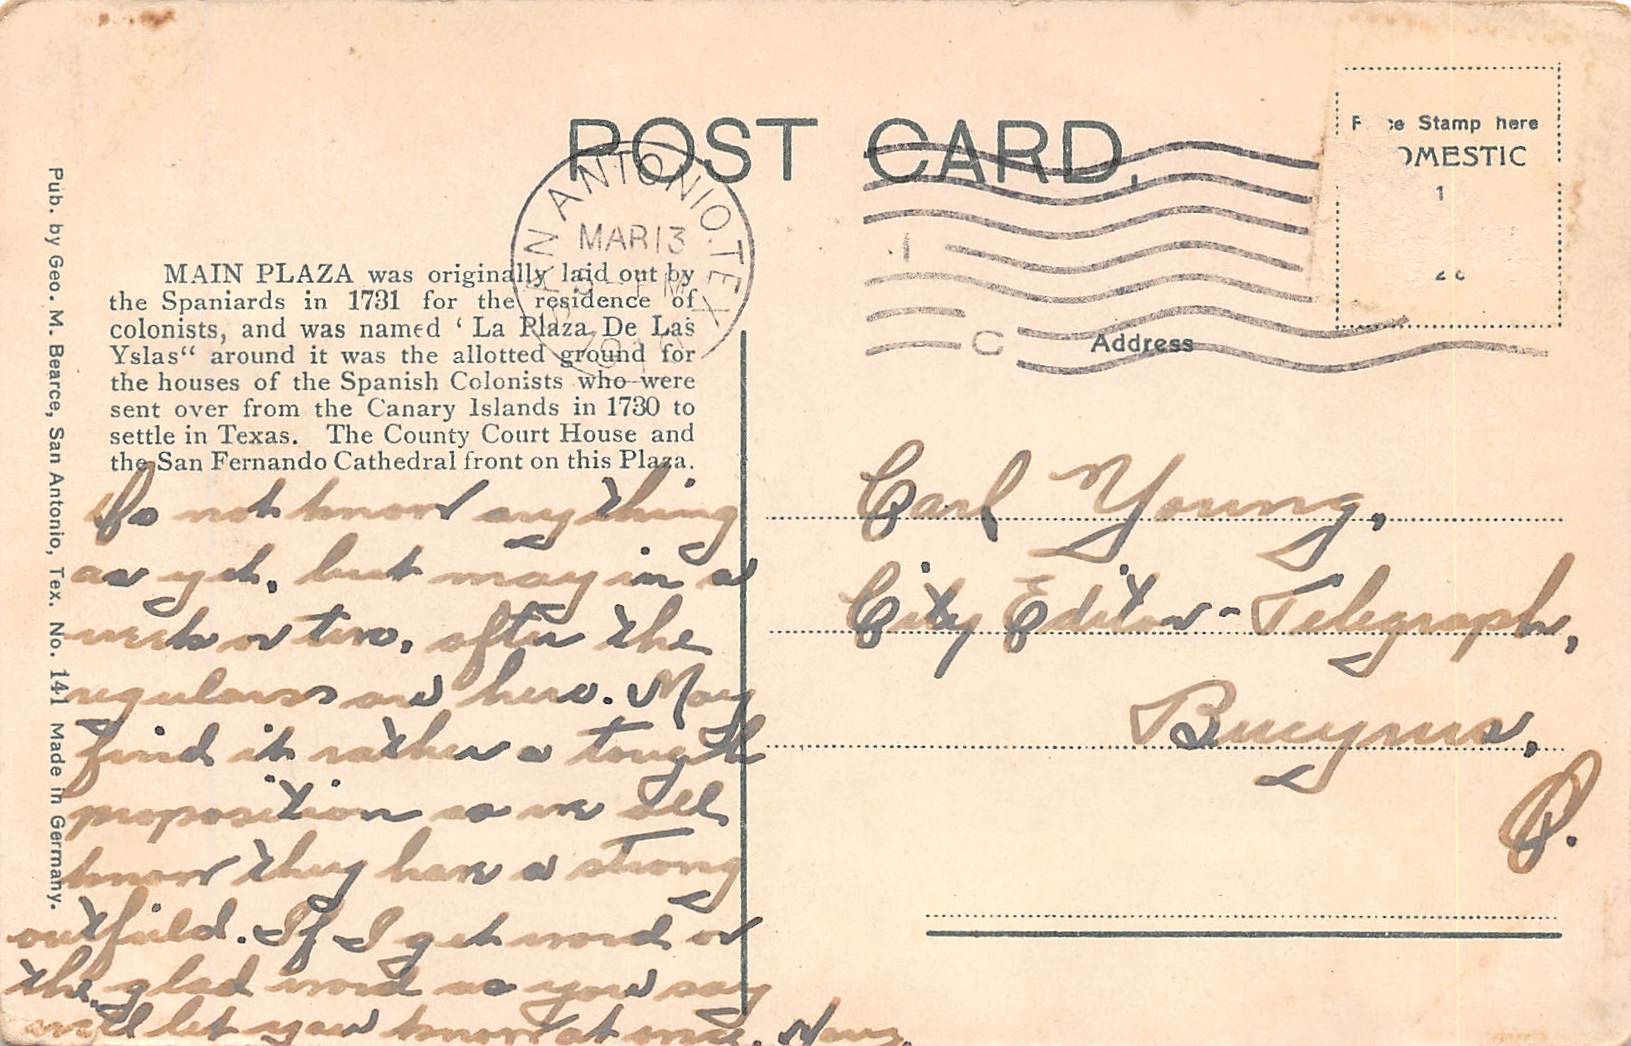 POST CARD.
Place Stamp here
DOMESTIC
1
SAN ANTONIO, TEX.
MAR 13
1
C
Address
MAIN PLAZA was originally laid out by
the Spaniards in 1731 for the residence of
colonists, and was named ‘ La Plaza De Las
Yslas“ around it was the allotted ground for
the houses of the Spanish Colonists who were
sent over from the Canary Islands in 1730 to
settle in Texas. The County Court House and
the San Fernando Cathedral front on this Plaza.
Do not know anything
as yet, but may in a
week or two, after the
regulars are here. May
find it rather a tough
proposition as we all
know they have a strong
outfield. If I get word or
the glad word as you say
will let you know at once.
Carl Young,
City Editor - Telegraph,
Bucyrus,
O.
Pub. by Geo. M. Bearce, San Antonio, Tex. No. 141 Made in Germany.